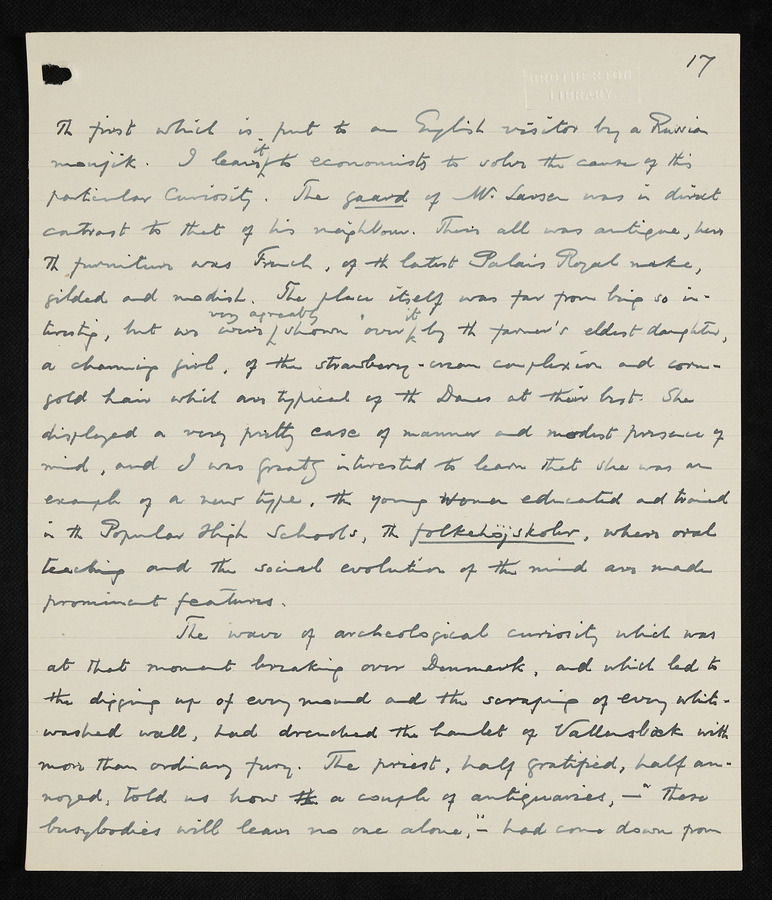 17
BROTHERTON
LIBRARY
The first which is put to an English visitor by a Russian
moujik. I leave it to economists to solve the cause of this
particular curiosity. The gaard of Mr. Larsen was in direct
contrast to that of his neighbour. There all was antique, here
the furniture was French, of the latest Palais Royal make,
gilded and modish. The place itself was far from being so in-
teresting, but we were very agreeably shown over it by the farmer's eldest daughter,
a charming girl, of the strawberry-cream complexion and corn-
gold hair which are typical of the Danes at their best. She
displayed a very pretty ease of manner and modest presence of
mind, and I was greatly interested to learn that she was an
example of a new type, the young woman educated and trained
in the Popular High Schools, the folkehöjskoler, where oral
teaching and the social evolution of the mind are made
prominent features.
The wave of archeological curiosity which was
at that moment breaking over Denmark, and which led to
the digging up of every mound and the scraping of every white-
washed wall, had drenched the hamlet of Vallensbæk with
more than ordinary fury. The priest, half gratified, half an-
noyed, told us how a couple of antiquaries, — "These
busybodies will leave no one alone," — had come down from